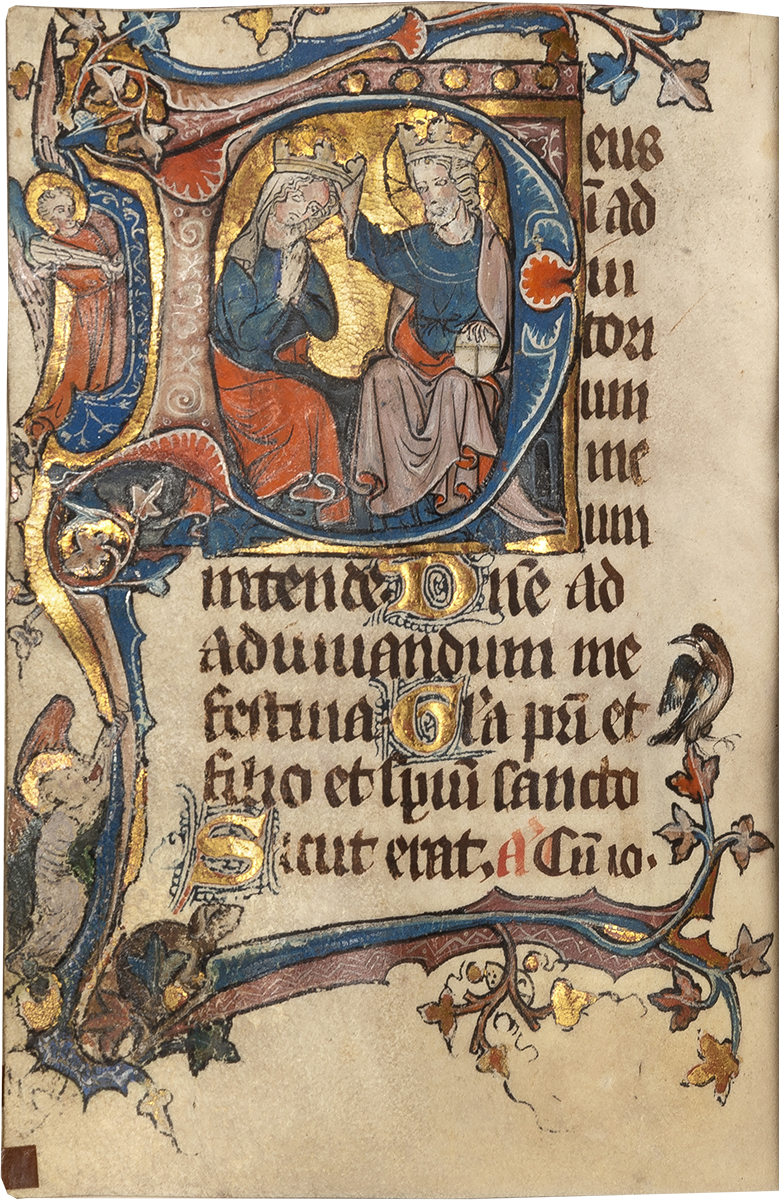 Deus
ī ad
iu
tori
um
me
um
intende Dñe ad
adiuuandum me
festina Gl'a pr̄i et
filio et sp̄ui sancto
Sicut erat, A' Cū io.